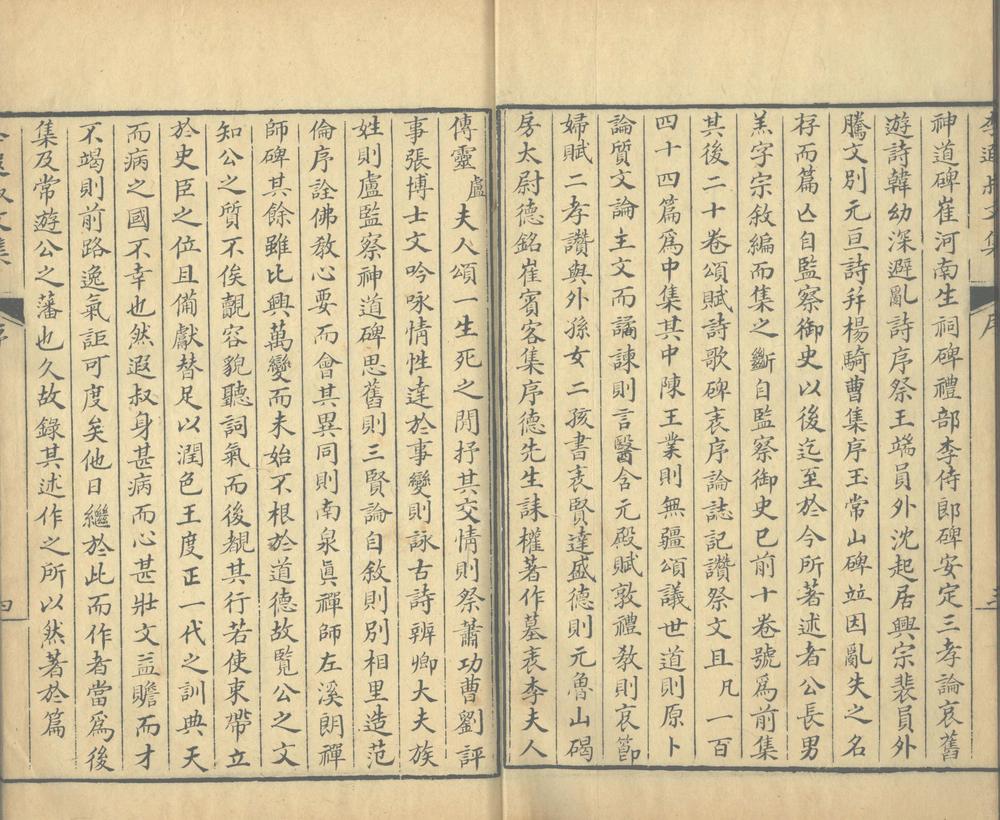 李遐叔文集
序
三
神道碑崔河南生祠碑禮部李侍郎碑安定三孝論哀舊
遊詩韓幼深避亂詩序祭王端員外沈起居興宗裴員外
騰文別元亘詩幷楊騎曹集序王常山碑竝因亂失之名
存而篇亾自監察御史以後迄至於今所著述者公長男
羔字宗敘編而集之斷自監察御史已前十卷號爲前集
其後二十卷頌賦詩歌碑表序論誌記讚祭文且凡一百
四十四篇爲中集其中陳王業則無疆頌議世道則原卜
論質文論主文而譎諫則言醫含元殿賦敦禮教則哀節
婦賦二孝讚與外孫女二孩書表賢達盛德則元魯山碣
房太尉德銘崔賓客集序德先生誄權著作墓表李夫人
傳靈盧夫人頌一生死之閒抒其交情則祭蕭功曹劉評
事張博士文吟咏情性達於事變則詠古詩辨卿大夫族
姓則盧監察神道碑思舊則三賢論自敘則別相里造范
倫序詮佛教心要而會其異同則南泉眞禪師左溪朗禪
師碑其餘雖比興萬變而未始不根於道德故覽公之文
知公之質不俟覿容貌聽詞氣而後覩其行若使束帶立
於史臣之位且備獻替足以潤色王度正一代之訓典天
而病之國不幸也然遐叔身甚病而心甚壯文益贍而才
不竭則前路逸氣詎可度矣他日繼於此而作者當爲後
集及常遊公之藩也久故錄其述作之所以然著於篇
李遐叔文集
序
四